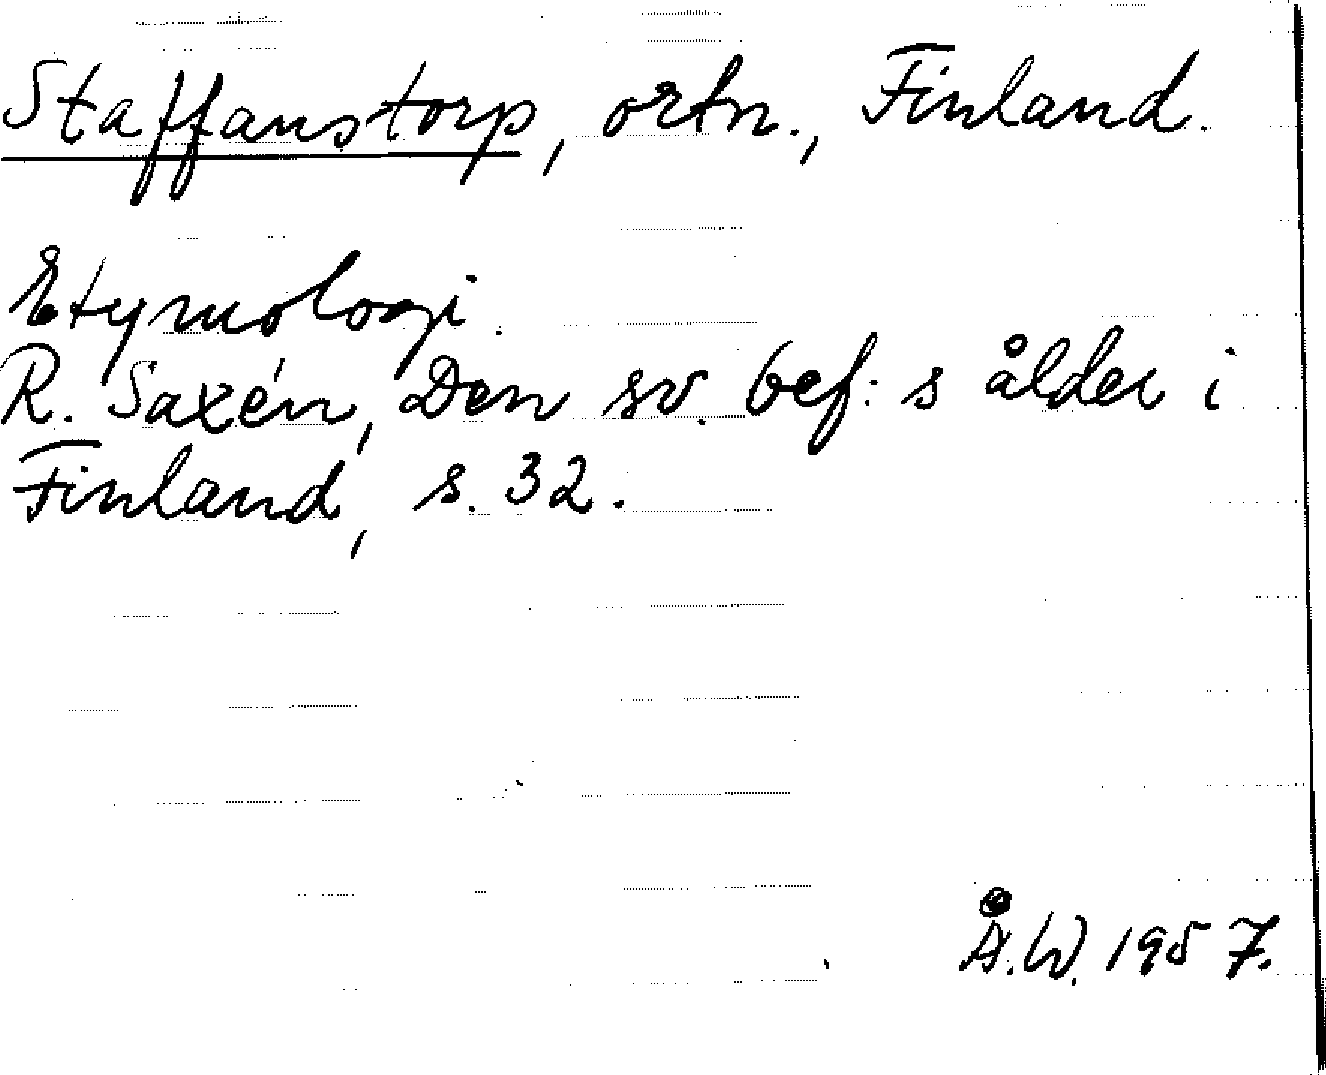 Staffanstorp, ortn., Finland.
Etymologi.
R. Saxén, Den sv. bef:s ålder i
Finland, s. 32.
Å.W. 1957.